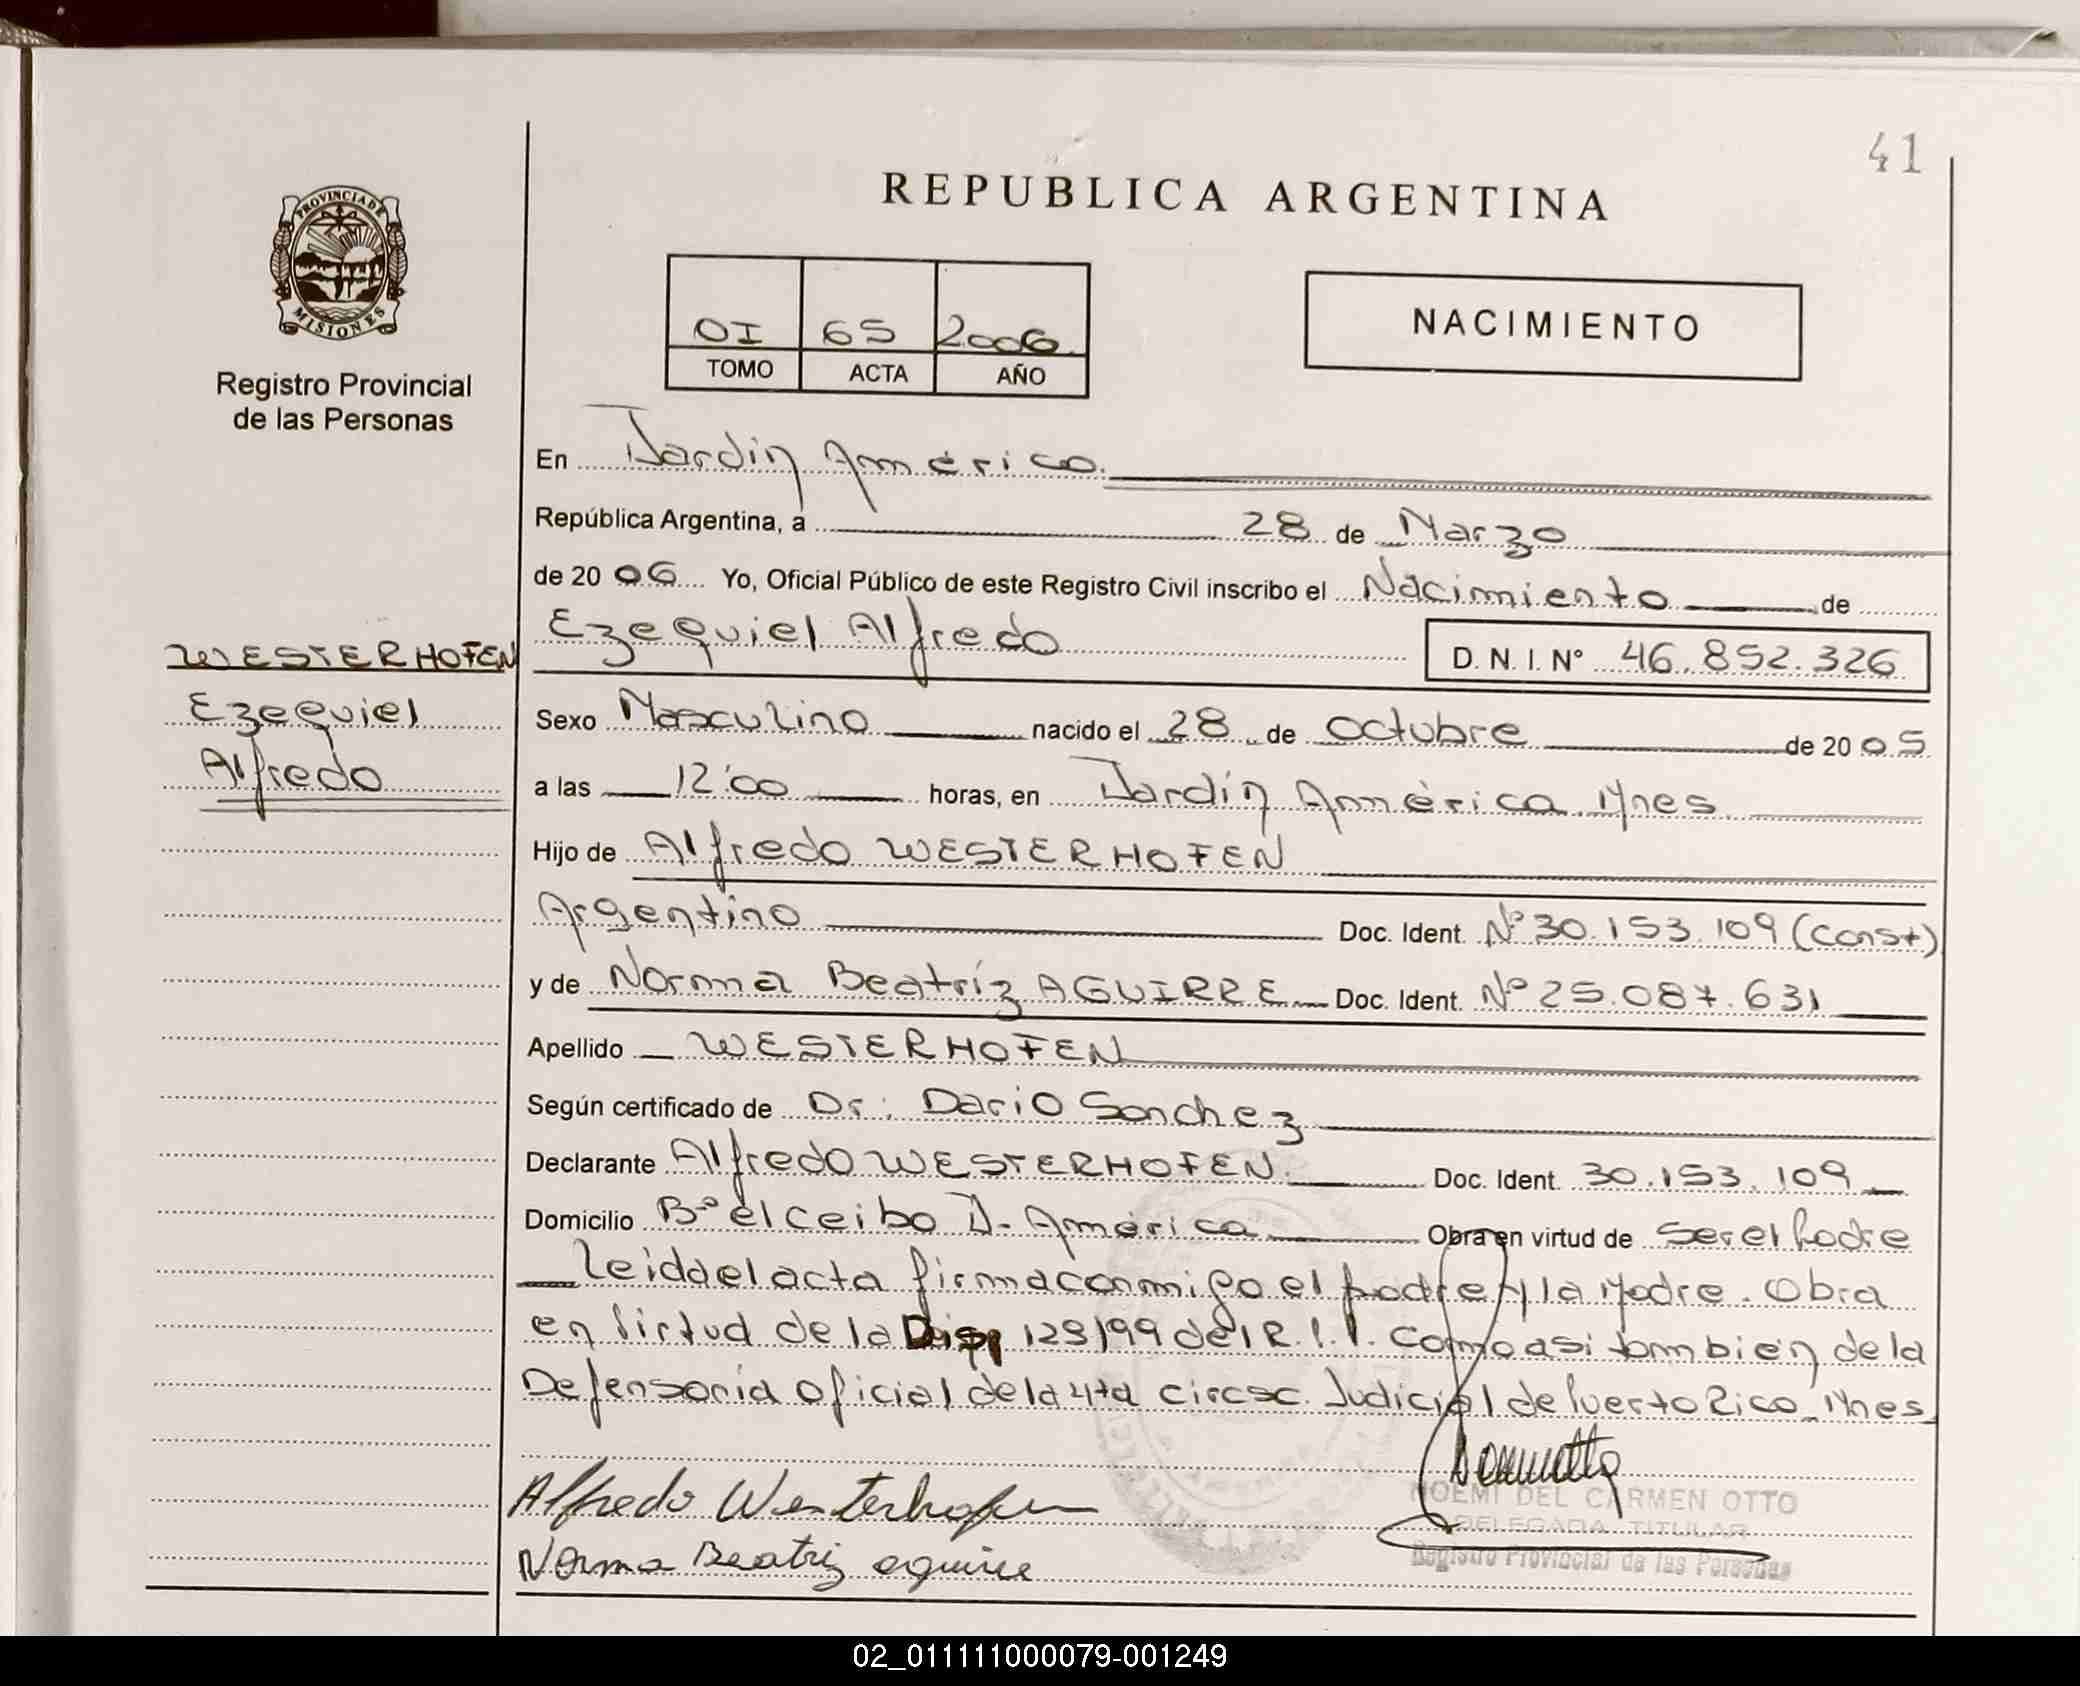 41
REPUBLICA ARGENTINA
PROVINCIA DE
MISIONES
Registro Provincial
de las Personas
OI 65 2006
TOMO ACTA AÑO
NACIMIENTO
En Jardin América
República Argentina, a 28 de Marzo
de 2006 Yo, Oficial Público de este Registro Civil inscribo el Nacimiento de
Ezequiel Alfredo D. N. I. N° 46.852.326
WESTERHOFEN
Ezequiel
Alfredo
Sexo Masculino nacido el 28 de octubre de 2005
a las 12:00 horas, en Jardin América. Mnes
Hijo de Alfredo WESTERHOFEN
Argentino Doc. Ident. Nº 30.153.109 (const)
y de Norma Beatriz AGUIRRE Doc. Ident. Nº 25.087.631
Apellido WESTERHOFEN
Según certificado de Dr. Dario Sanchez
Declarante Alfredo WESTERHOFEN. Doc. Ident. 30.153.109
Domicilio Bº el ceibo J. América Obra en virtud de ser el Padre
Leida el acta firma conmigo el padre y la Madre. Obra
en Virtud de la Disp 129/99 del R.P.P. como asi tambien de la
Defensoria oficial de la 4ta circsc. Judicial de Puerto Rico, Mnes
Alfredo Westerhofen
Norma Beatriz aguirre
NOEMI DEL CARMEN OTTO
DELEGADA TITULAR
Registro Provincial de las Personas
02_011111000079-001249